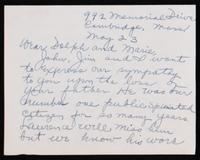 992 Memorial Drive
Cambridge, Mass
May 23
Dear Ralph and Marie,
John, Jim and I want
to express our sympathy
to you upon the loss of
your father. He was our
number one public spirited
citizen for so many years
Lawrence will miss him
but we know his work